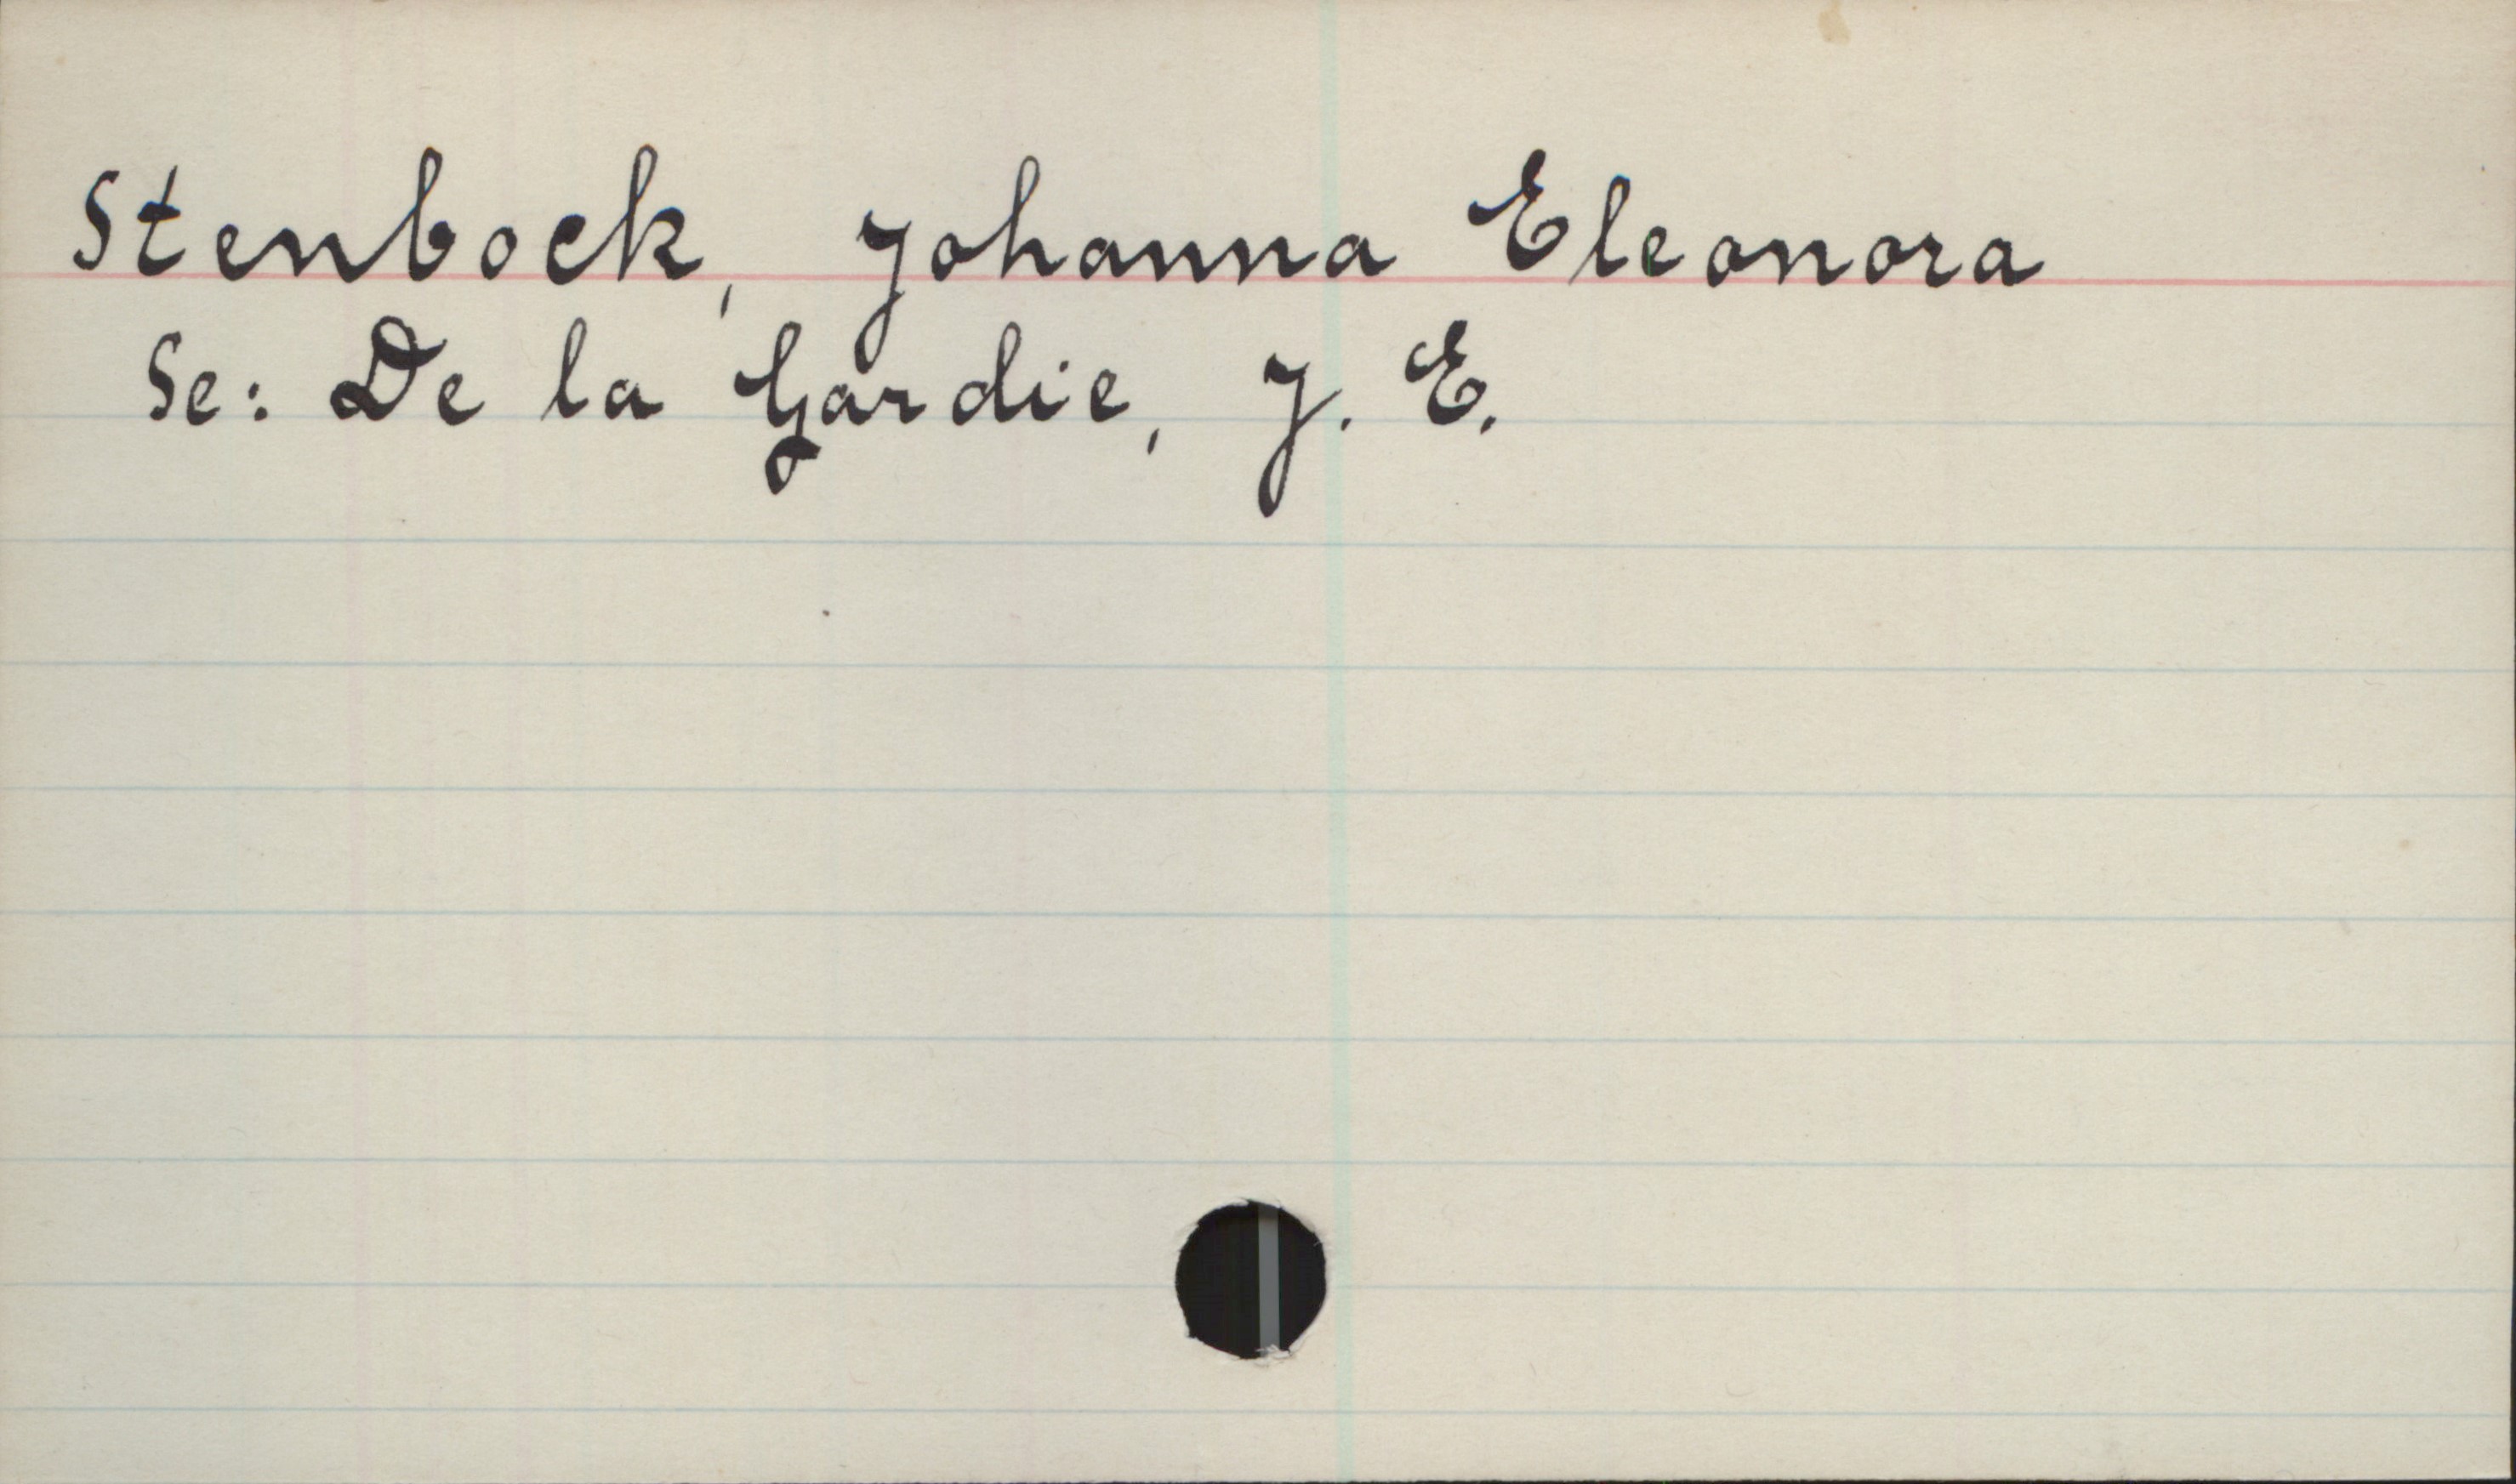 Stenbock, Johanna Eleonora
Se: De la Gardie, J. E.